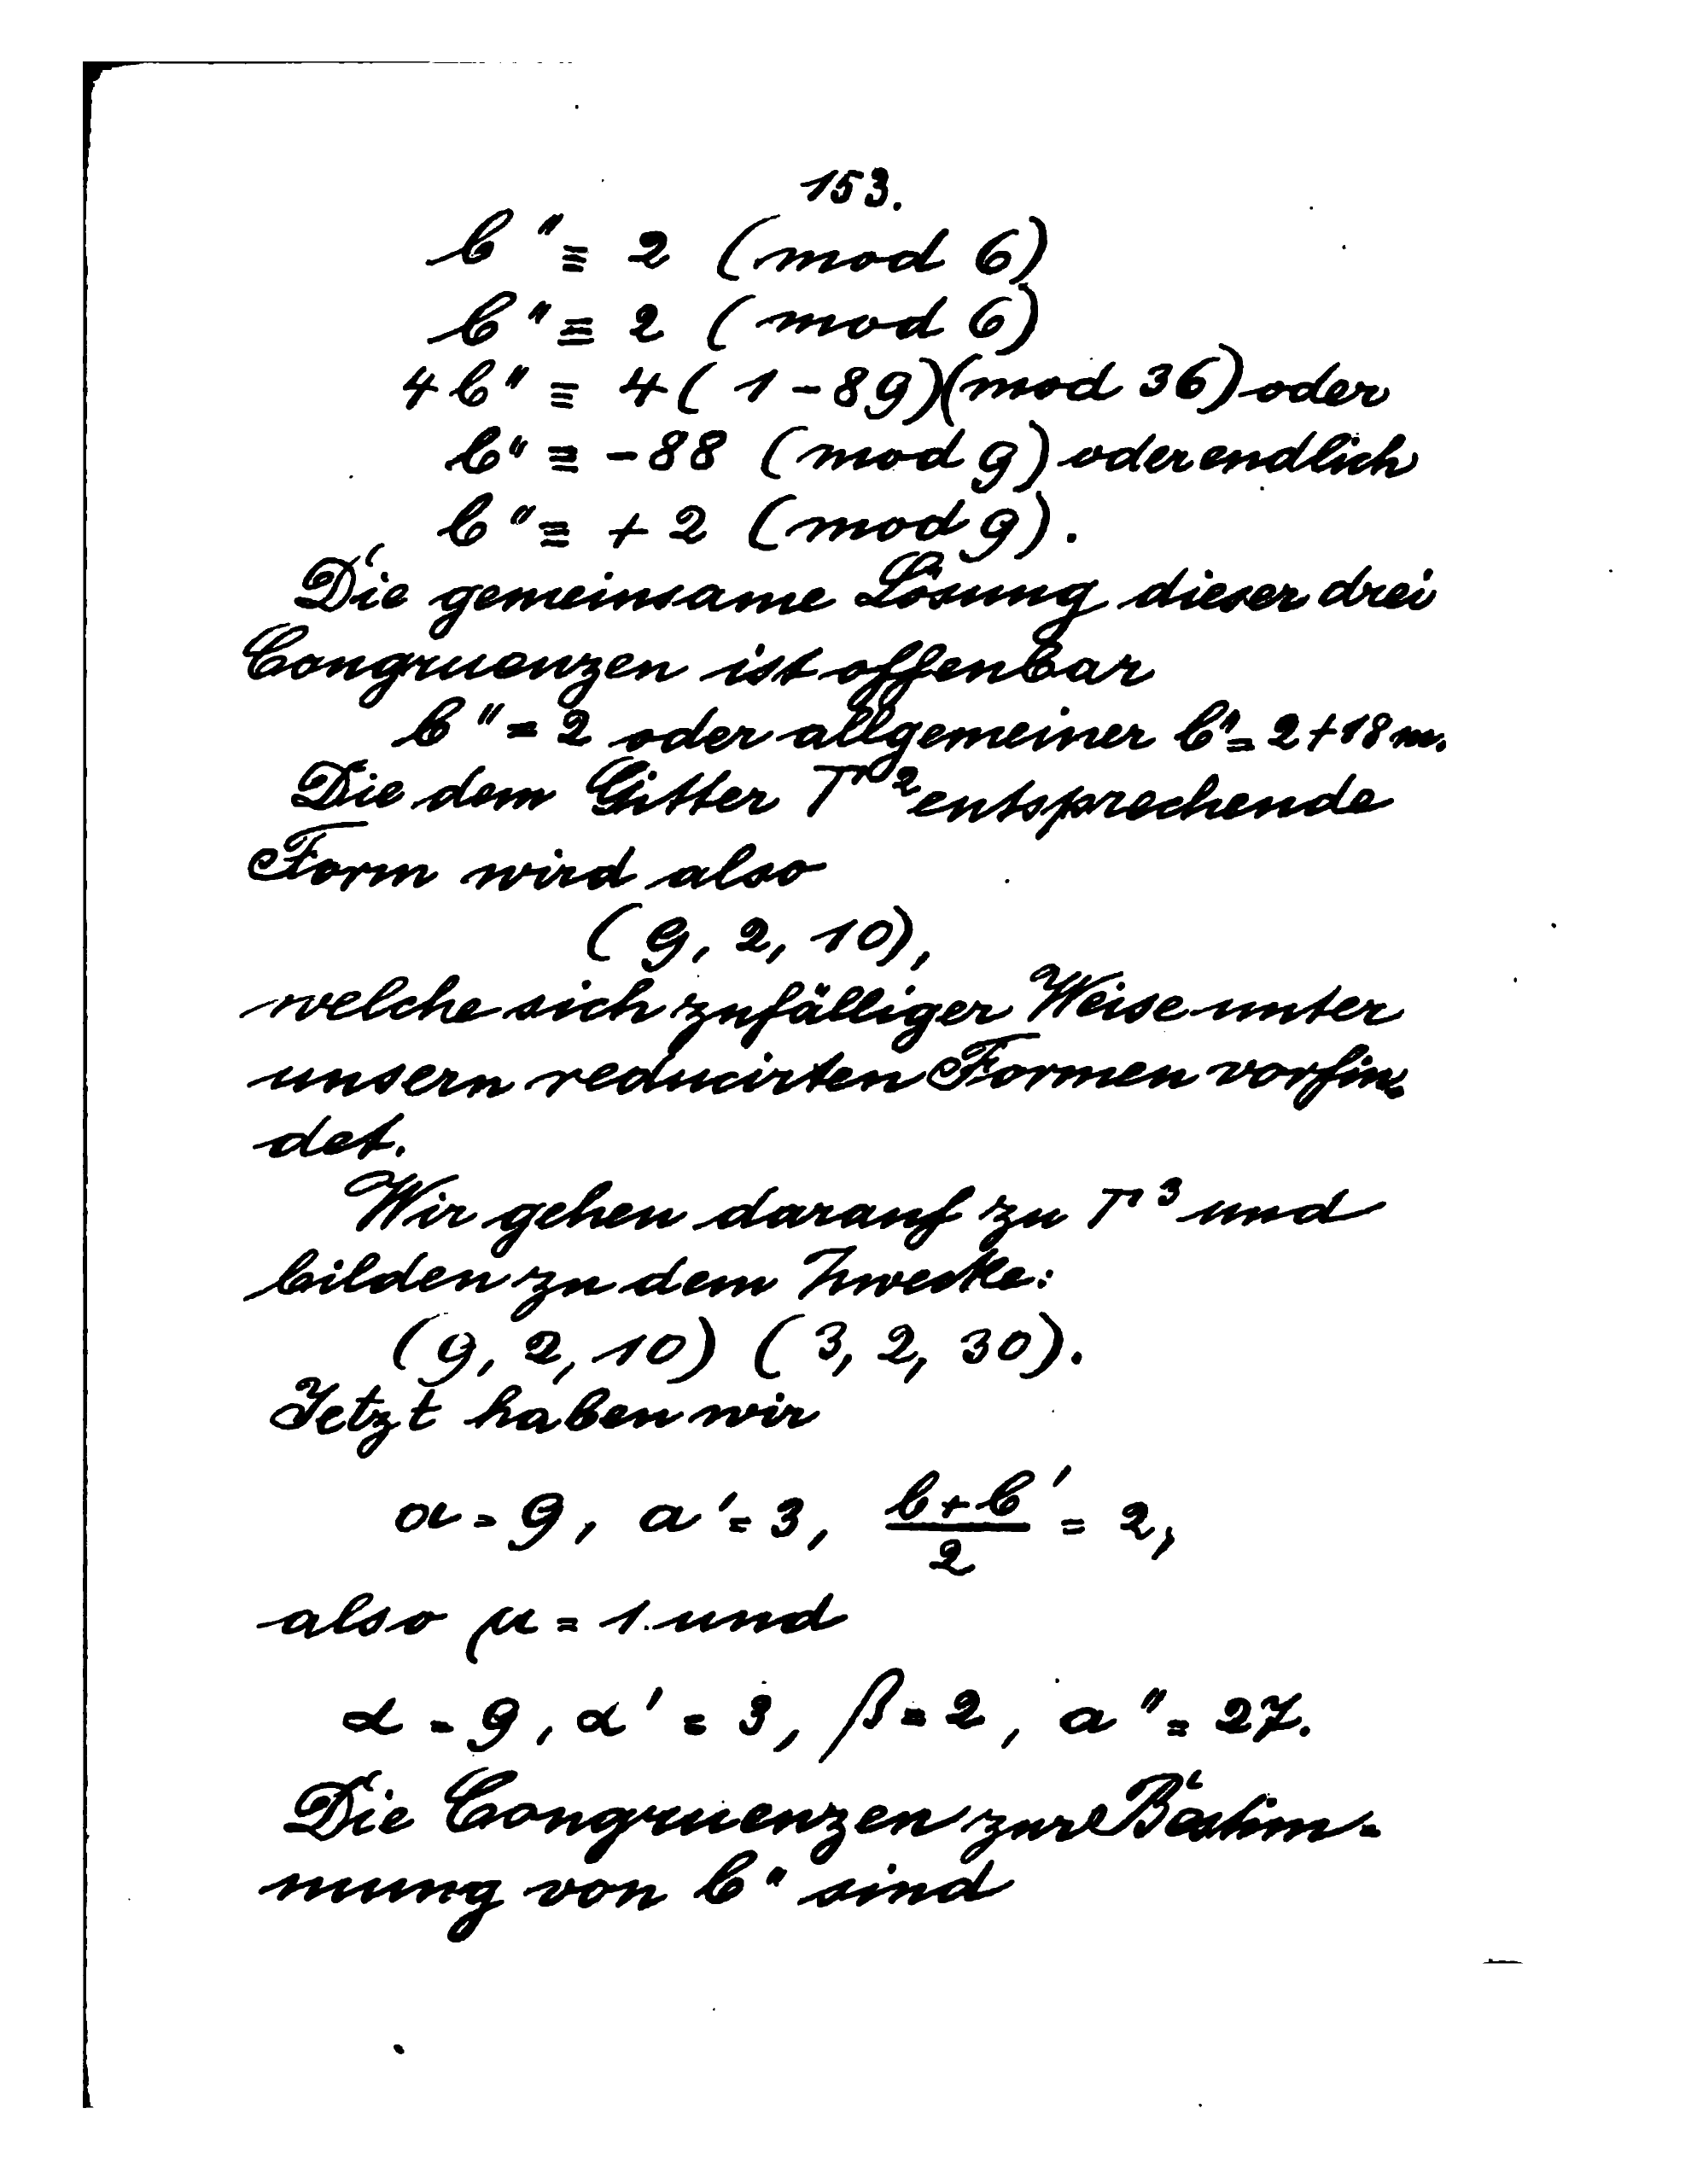 153.
b″ ≡ 2 (mod 6)
b″ ≡ 2 (mod 6)
4b″ ≡ 4(1-89)(mod 36) oder
b″ ≡ -88 (mod 9) oder endlich
b″ ≡ +2 (mod 9).
Die gemeinsame Lösung dieser drei
Congruenzen ist offenbar
b″ = 2 oder allgemeiner b″ = 2+18m.
Die dem Gitter Γ² entsprechende
Form wird also
(9, 2, 10),
welche sich zufälliger Weise unter
unsern reducirten Formen vorfin-
det.
Wir gehen darauf zu Γ³ und
bilden zu dem Zwecke:
(9, 2, 10) (3, 2, 30).
Jetzt haben wir
a = 9, a′ = 3, (b+b′)/2 = 2,
also μ = 1. und
α = 9, α′ = 3, β = 2, a″ = 27.
Die Congruenzen zur Bestim-
mung von b″ sind